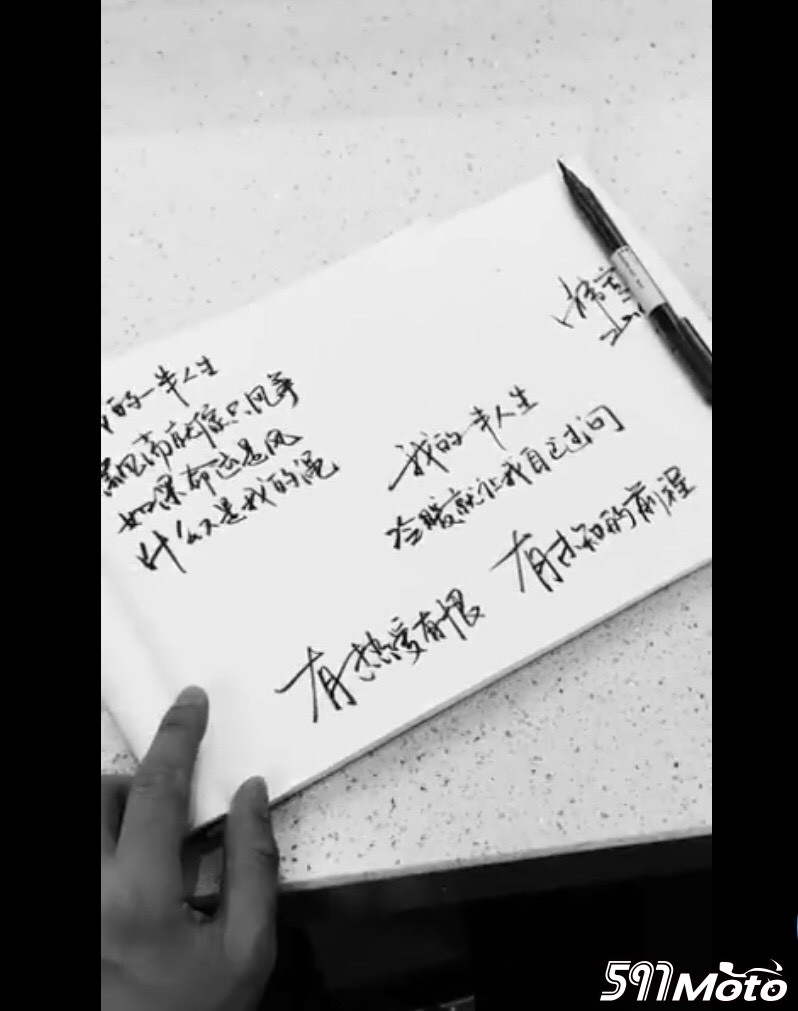 的一半人生
飘荡就像只风筝
如果命运是风
什么又是我的绳
我的半人生
冷暖就让我自己过问
有热爱有恨
有未知的前程
597Moto